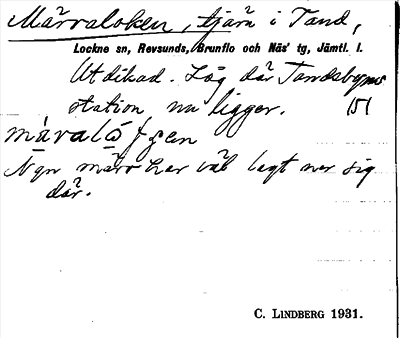 Märraloken, tjärn i Tand,
Lockne sn, Revsunds, Brunflo och Näs' tg, Jämtl. l.
Utdikad. Låg där Tandsbyns
station nu ligger. 151
Ngn märr har väl lagt ner sig
där.
C. LINDBERG 1931.